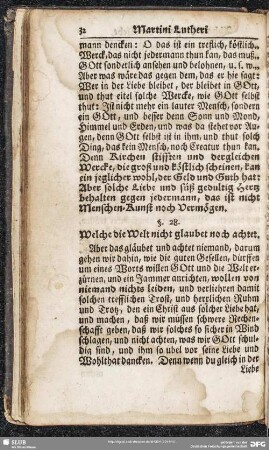 32 Martini Lutheri
mann dencken: O das ist ein treflich, köstlich
Werck, das nicht jedermann thun kan, das muß
GOtt sonderlich ansehen und belohnen, u. s. w.
Aber was wäre das gegen dem, das er hie sagt:
Wer in der Liebe bleibet, der bleibet in GOtt,
und thut eitel solche Wercke, wie GOtt selbst
thut: Ist nicht mehr ein lauter Mensch, sondern
ein GOtt, und besser denn Sonn und Mond,
Himmel und Erden, und was da stehet vor Au-
gen, denn GOtt selbst ist in ihm, und thut solch
Ding, das kein Mensch, noch Creatur thun kan.
Denn Kirchen stifften und dergleichen
Wercke, die groß und köstlich scheinen, kan
ein jeglicher wohl, der Geld und Guth hat:
Aber solche Liebe und süß gedultig Hertz
behalten gegen jedermann, das ist nicht
Menschen-Kunst noch Vermögen.
§. 28.
Welche die Welt nicht glaubet noch achtet.
Aber das gläubet und achtet niemand, darum
gehen wir dahin, wie die guten Gesellen, dürffen
um eines Worts willen GOtt und die Welt er-
zürnen, und ein Jammer anrichten, wollen von
niemand nichts leiden, und verliehren damit
solchen trefflichen Trost, und herrlichen Ruhm
und Trotz, den ein Christ aus solcher Liebe hat,
und machen, daß wir müssen schwere Rechen-
schafft geben, daß wir solches so sicher in Wind
schlagen, und nicht achten, was wir GOtt schul-
dig sind, und ihm so übel vor seine Liebe und
Wohlthat dancken. Denn wenn du gleich in der
Liebe
SLUB
DFG